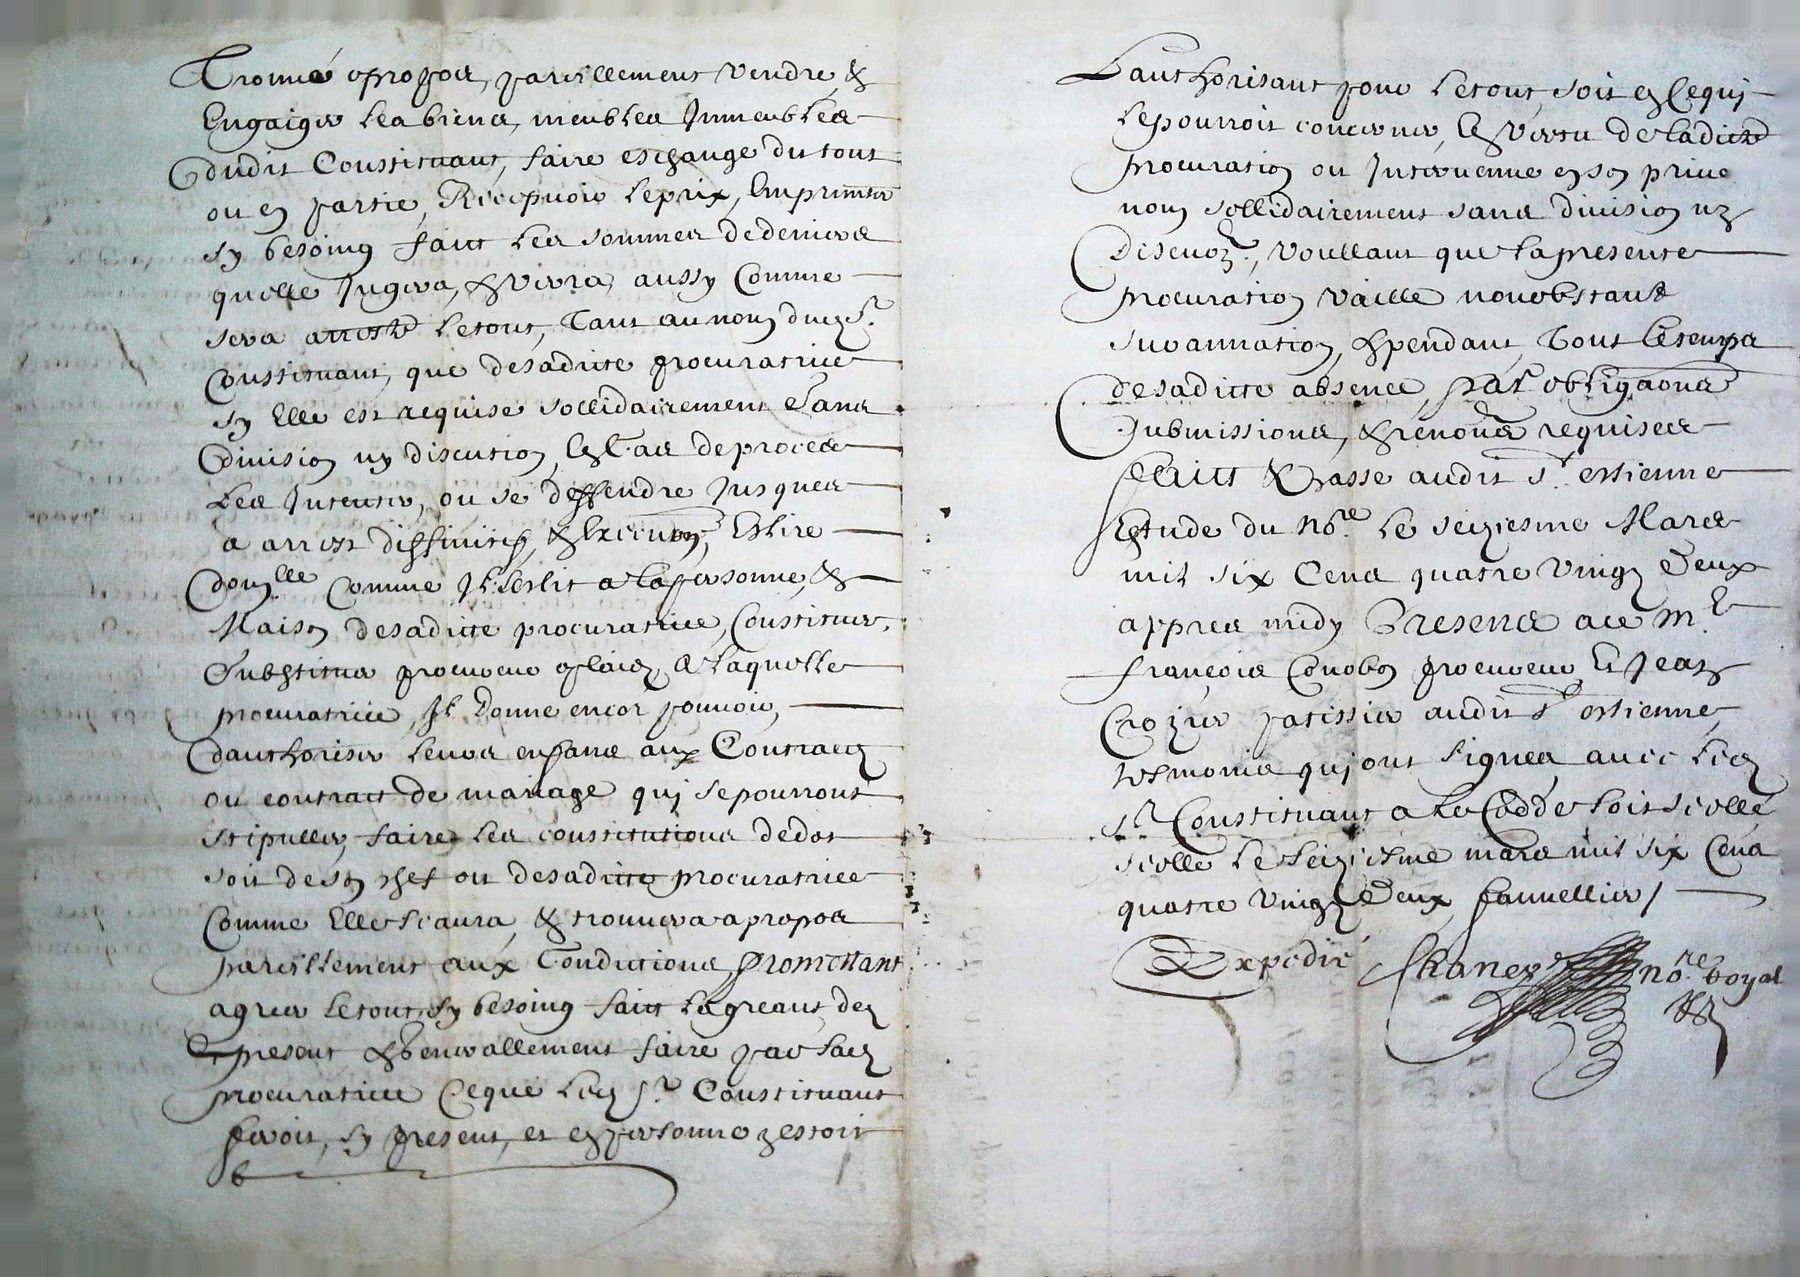 Trouvé apropos, pareillement vendre, &
Engaiger les biens, meubles Immeubles
dudit Constituant, faire eschange du tout
ou en partie, Recepvoir le prix, Emprunter
sy besoing faict les sommes de deniers
quelle Jugera, & verra, aussy Comme
sera arresté le tout, Tant au nom dud Sr
Constituant, que desadicte procuratrice
sy Elle est requise sollidairement Sans
division ny discution, En Cas de proces
les Intenter, ou se deffendre Jusques
a arrest diffinitif, & Execution, Eslire
domlle Comme Il Eslit a la personne, &
Maison desadicte procuratrice, Constituer,
Substituer procureur es laiz, A laquelle
procuratrice, Il Donne encor pouvoir,
dauthoriser leurs enfans aux Contractz
ou contract de mariage quj se pourront
stipuller, faire les constitutions de dot
soit de son chef ou desadicte procuratrice
Comme Elle scaura, & trouvera apropos
pareillement aux Conditions Promettant
agreer le tout, sy besoing faict lagreant, dez
apresent & Generallement faire par lad
procuratrice Ceque led Sr Constituant
feroit, sy present, et en personne y estoit
Lauthorisant pour le tout, soit en Cequj
le pourroit concerner, En vertu de ladicte
procuration ou Intervenue en son privé
nom sollidairement sans division ny
Discuon, voullant que la presente
procuration vaille nonobstant
surannation, & pendant Tout le temps
desadicte absence, Par obligaons
submissions, & renonons requises
Faict & Passe audit St estienne
Estude du Nore le seiziesme Mars
mil six Cens quatre vingz Deux
appres midy Presens ace Mr
françois procureur, Et Jean
Crozier patissier audit St estienne,
tesmoins quj ont signes avec led
Sr Constituant a la Cedde soit scellé
scellé le seiziesme mars mil six Cens
quatre vingz Deux,
Expedié nore royal